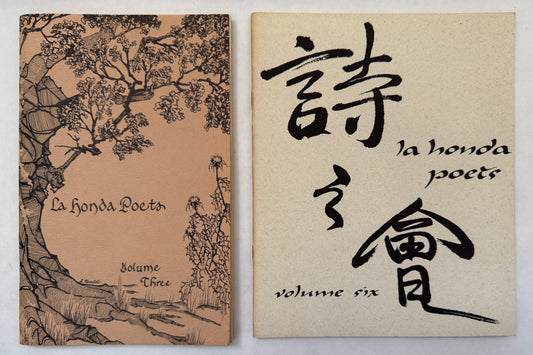 La Honda Poets
Volume
Three
詩
之
會
la honda
poets
volume six